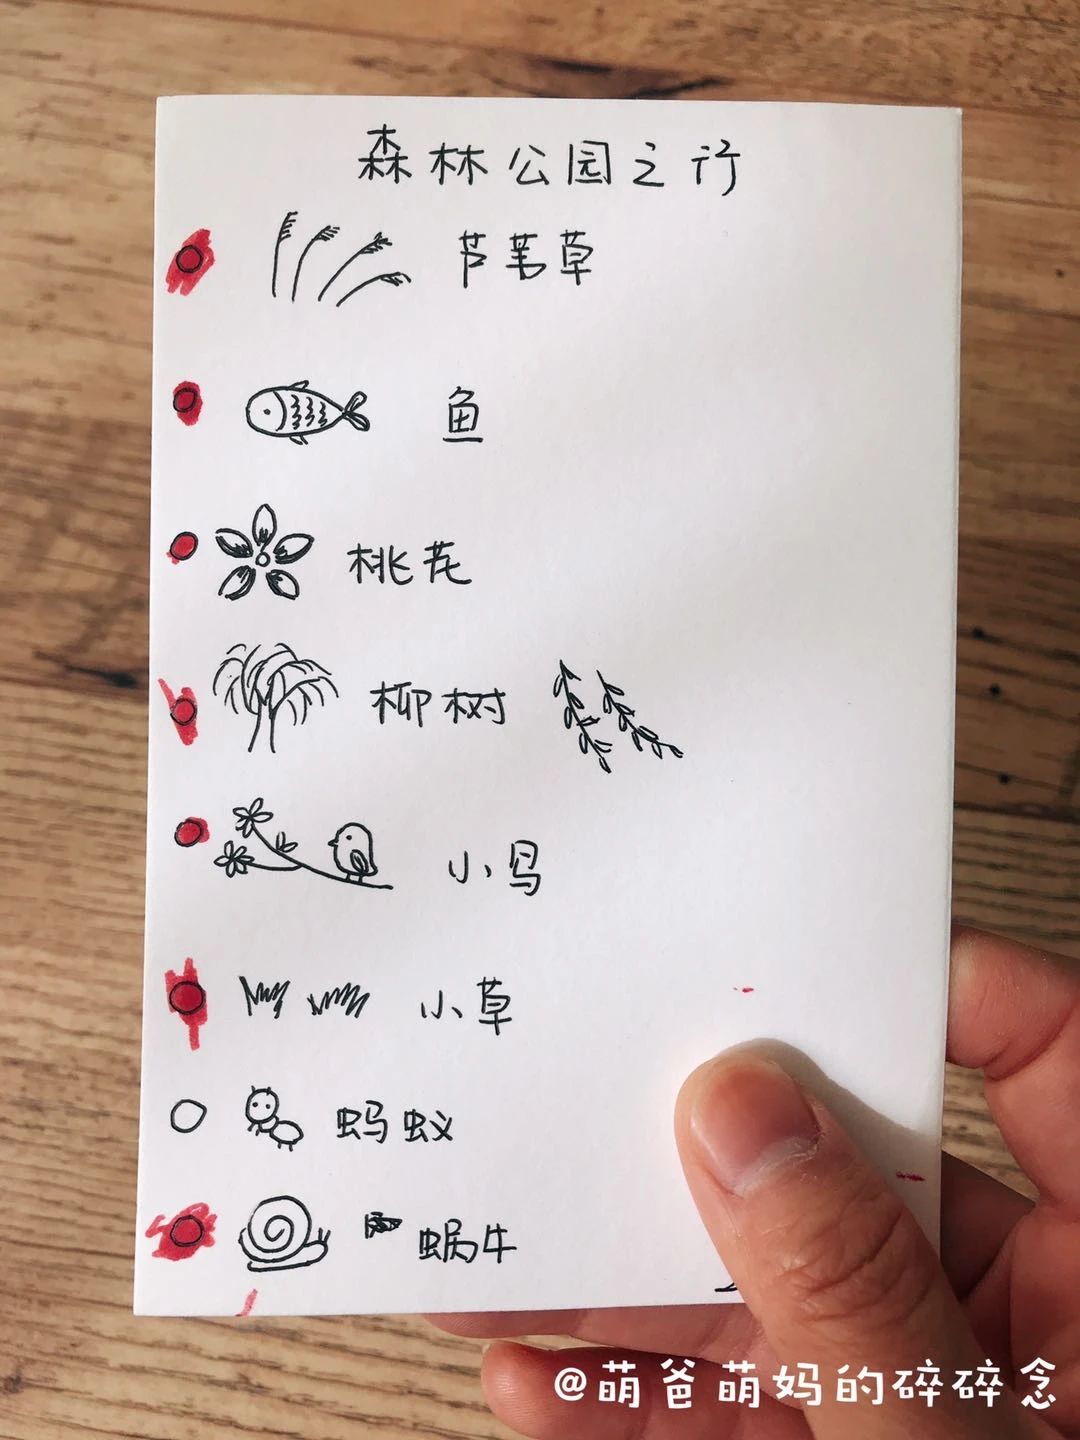 森林公园之行
芦苇草
鱼
桃花
柳树
小鸟
小草
蚂蚁
蜗牛
@萌爸萌妈的碎碎念